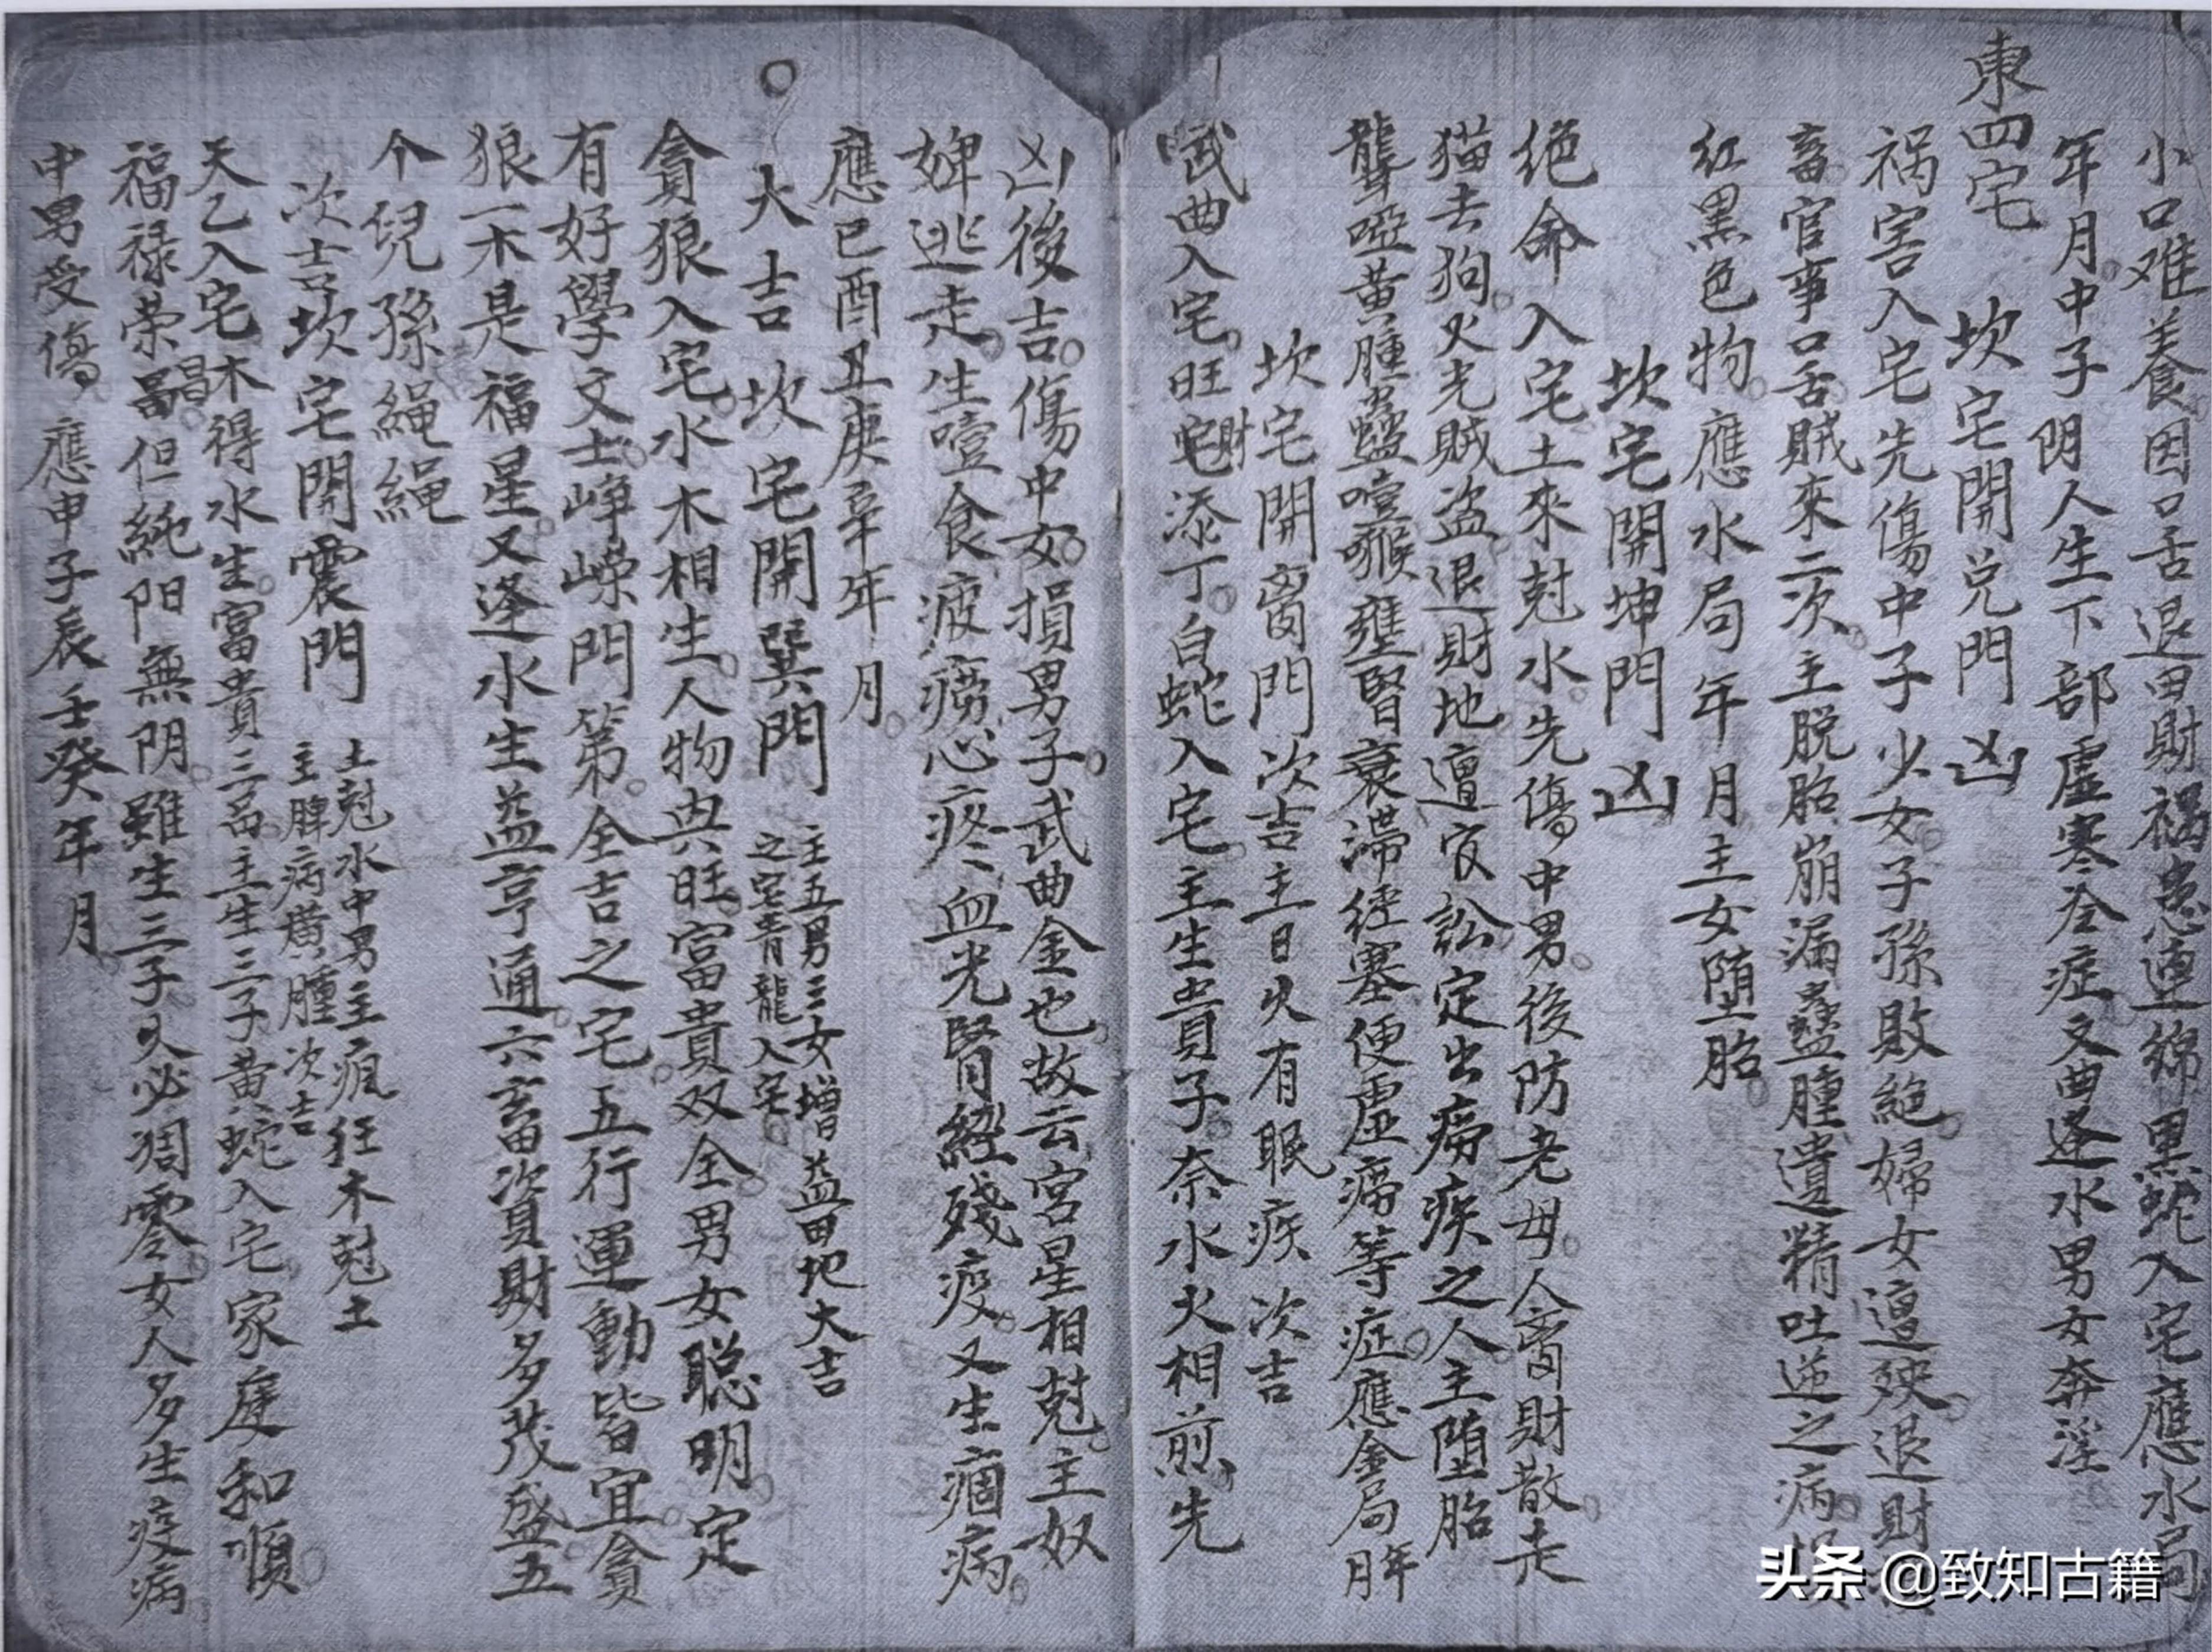 小口难養因口舌退田財禍患連綿黑蛇入宅應水局
年月中子阴人生下部虛寒冷症文曲逢水男女奔淫
東四宅 坎宅開兑門 凶
祸害入宅先傷中子少女子孫敗絶婦女遭殃退財
畜官事口舌賊來二次主脱胎崩漏蠱腫遺精吐逆之病
红黑色物應水局年月主女堕胎
坎宅開坤門 凶
绝命入宅土來尅水先傷中男後防老母人窗財散走
猫去狗火光賊盗退財地遭官訟定出痨疾之人主堕胎
聾啞黄腫蠱噎喉壅腎衰滞經塞便虚痨等症應金局年月
坎宅開离門次吉主目火有眠疾 次吉
武曲入宅旺財添丁白蛇入宅主生貴子奈水火相煎先
凶後吉傷中女損男子武曲金也故云宫星相尅主奴
婢逃走生噎食疲痨心疼血光腎經殘疫又生痼病
應巳酉丑庚辛年月
○大吉 坎宅開巽門 主五男三女增益田地大吉
之宅青龍入宅
貪狼入宅水木相生人物興旺富貴双全男女聪明定
有好學文士峥嵘門第全吉之宅五行運動皆宜貪
狼一木是福星又逢水生益亨通六畜資財多茂盛五
个兒孫繩繩
次吉坎宅開震門 土尅水中男主瘋狂木尅土
主脾病癀腫次吉
天乙入宅木得水生富貴三昌主生三子黄蛇入宅家庭和順
福禄荣昌但純阳無阴雖生三子久必凋零女人多生疫病
中男受傷應申子辰壬癸年月
头条 @致知古籍